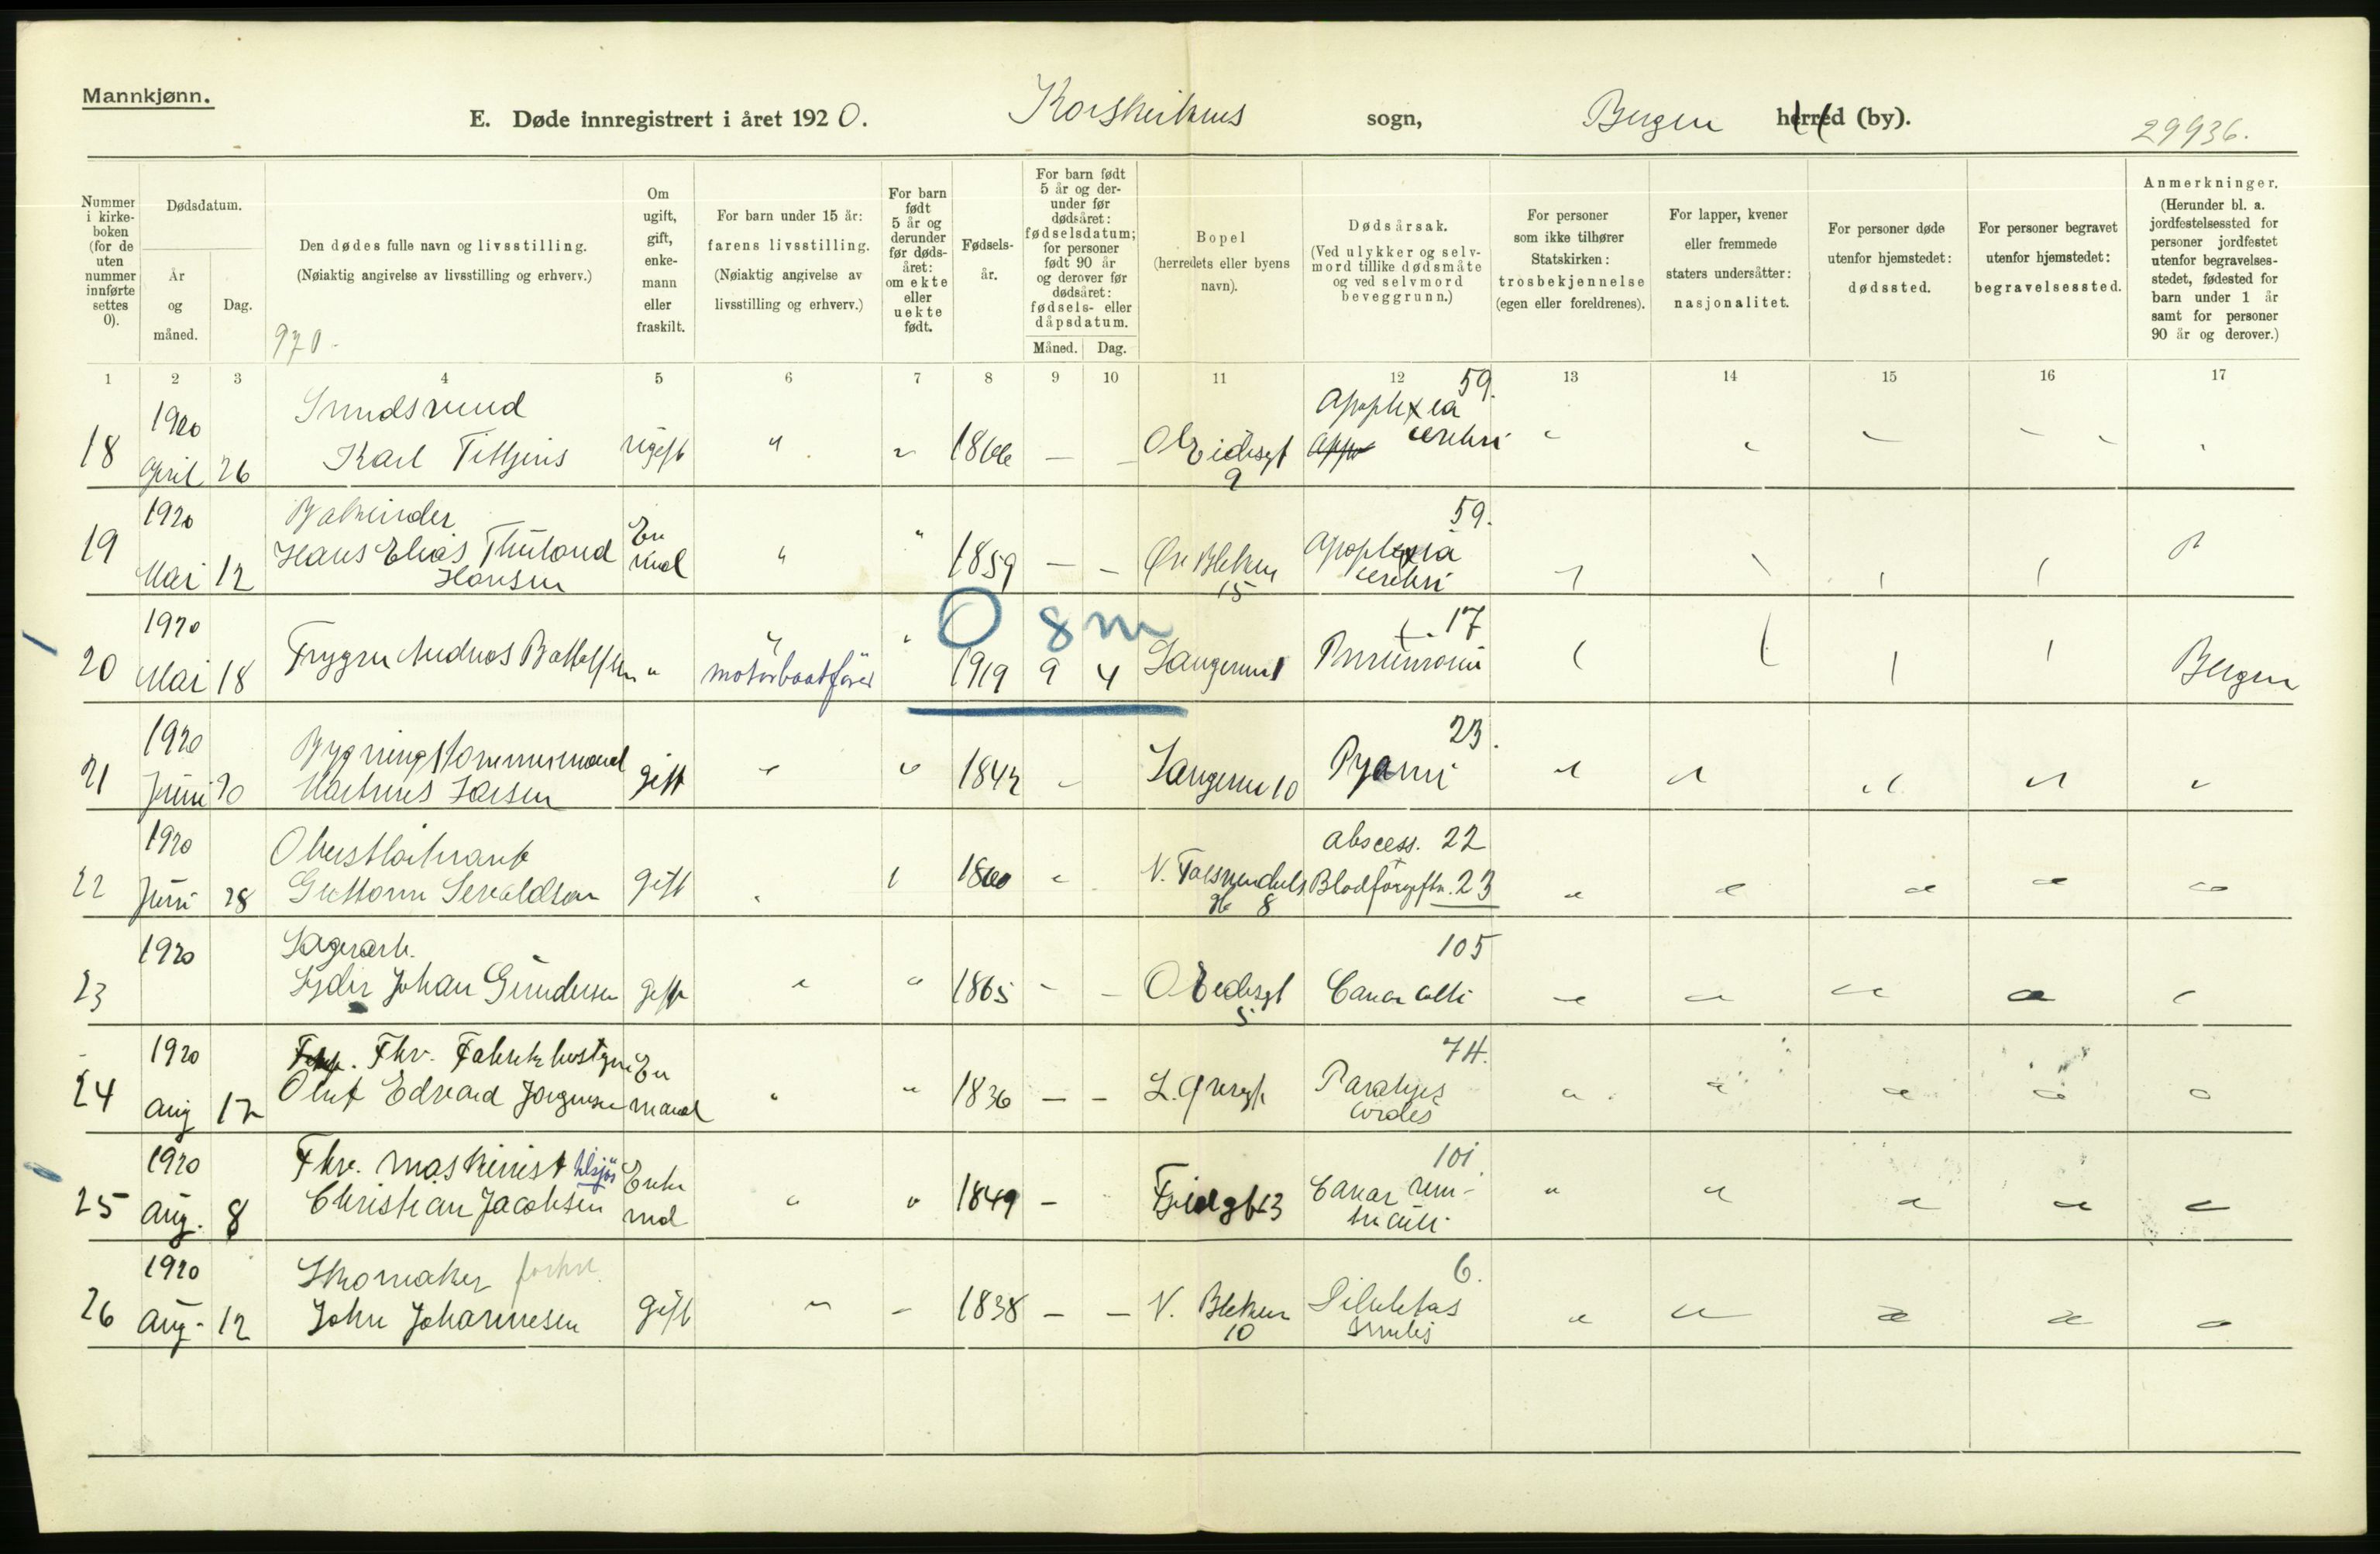 Mannkjønn.
E. Døde innregistrert i året 1920. Korskirkens sogn, Bergen herred (by). 29936.
Nummer i kirkeboken (for de uten nummer innførte settes 0).
Dødsdatum.
År og måned.
Dag.
Den dødes fulle navn og livsstilling.
(Nøiaktig angivelse av livsstilling og erhverv.)
970.
Om ugift, gift, enkemann eller fraskilt.
For barn under 15 år: farens livsstilling.
(Nøiaktig angivelse av livsstilling og erhverv.)
For barn født 5 år og derunder før dødsåret: om ekte eller uekte født.
Fødselsår.
For barn født 5 år og derunder før dødsåret: fødselsdatum; for personer født 90 år og derover før dødsåret: fødsels- eller dåpsdatum.
Måned. Dag.
Bopel
(herredets eller byens navn).
Dødsårsak.
(Ved ulykker og selvmord tillike dødsmåte og ved selvmord beveggrunn.)
For personer som ikke tilhører Statskirken: trosbekjennelse
(egen eller foreldrenes).
For lapper, kvener eller fremmede staters undersåtter: nasjonalitet.
For personer døde utenfor hjemstedet: dødssted.
For personer begravet utenfor hjemstedet: begravelsessted.
Anmerkninger.
(Herunder bl. a. jordfestelsessted for personer jordfestet utenfor begravelsesstedet, fødested for barn under 1 år samt for personer 90 år og derover.)
1 2 3 4 5 6 7 8 9 10 11 12 13 14 15 16 17
1920 59.
Apoplexia
18 April 26 Karl ugift " " 1866 — — O Eidesgt cerebri
9
1920 59.
19 Mai 12 Hans Elias Hansen " " 1859 — — Øvr Blekev Apoplexia
15 cerebri
0 8 m
1920 17
20 Mai 18 Andreas " motorbaatfører " 1919 9 4 Pneumoni Bergen
1920 Bygningstømmermand 23.
21 Juni 20 Martinus Larsen gift " " 1842 Pyæmi
1920 Oberstløitnant abscess. 22
22 Juni 28 Guttorm Sevaldson gift 1860 Blodforgiftn. 23
8
1920 Lagerarb. 105
23 Lyder Johan Gundersen gift " " 1865 - — O Eidesgt Cancer colli
5
1920 Fhv. En 74.
24 Aug 12 Oluf Edvard Jørgensen mand " " 1836 — — Paralysis
cordis
1920 Fhv. maskinist tilsjøs Enke 101
25 Aug. 8 Christian Jacobsen md " " 1849 — Cancer ven-
triculi
1920 Skomaker forhv. 6.
26 Aug. 12 John Johannesen gift " - 1838 — — V. Blekev
10 senilis